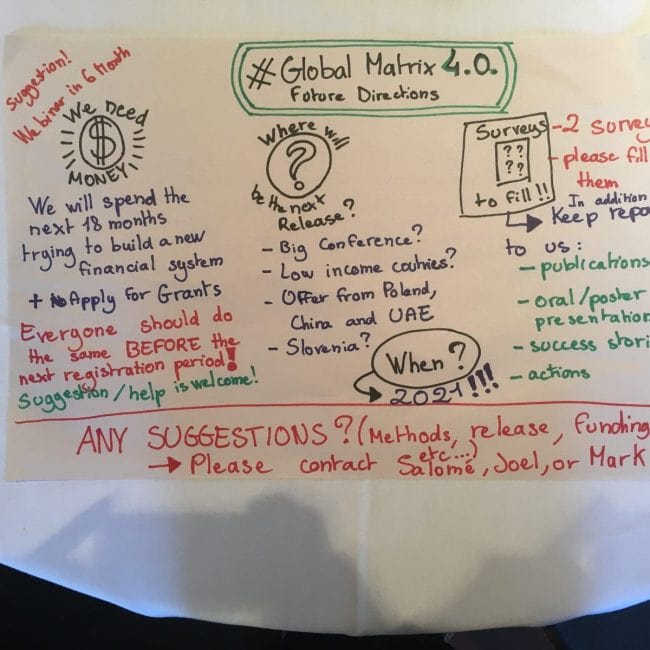 # Global Matrix 4.0.
Future Directions
Suggestion!
Webinar in 6 Month
We need
$
MONEY
We will spend the
next 18 months
trying to build a new
financial system
+ Apply for Grants
Everyone should do
the same BEFORE the
next registration period!
Suggestion/help is welcome!
Where will
?
be the next
Release?
- Big Conference?
- Low income coutries?
- Offer from Poland,
China and UAE
- Slovenia?
When?
2021!!!
Surveys
? ?
? ?
to fill!!
- 2 surve
- please fill
them
In addition
Keep repo
to us:
- publications
- oral/poster
presentation
- success stori
- actions
ANY SUGGESTIONS? (Methods, release, funding
etc...)
→ Please contact Salomé, Joel, or Mark